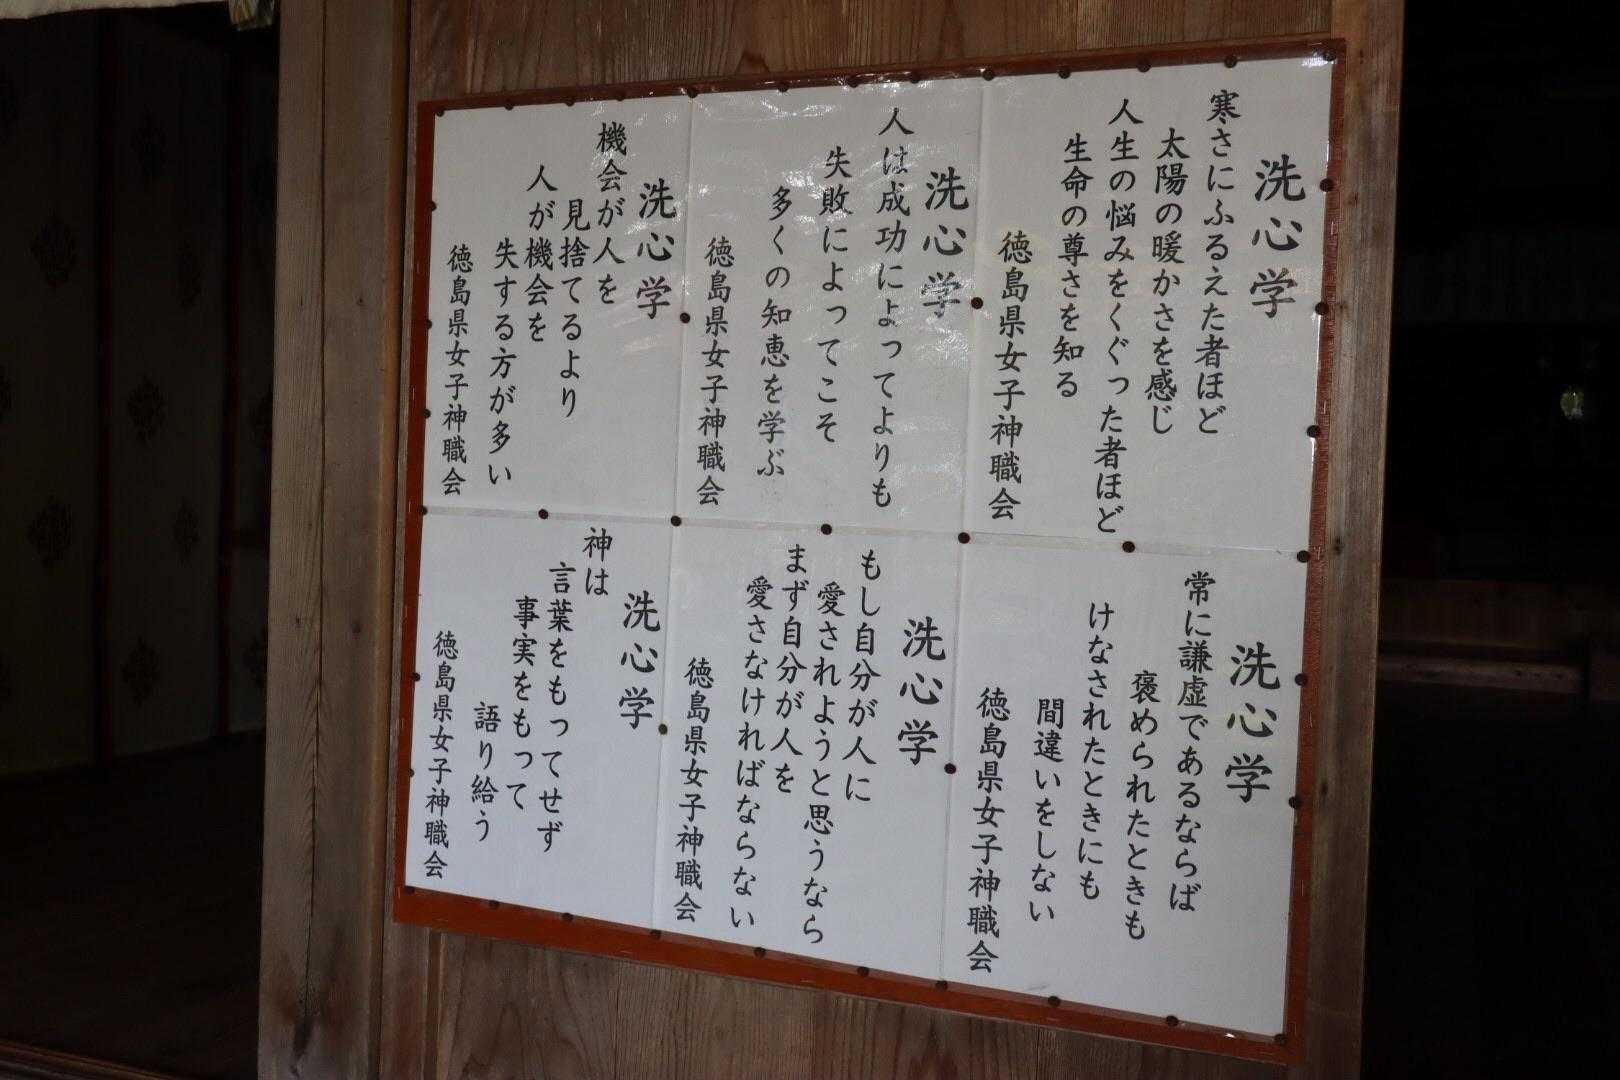 洗心学
寒さにふるえた者ほど
太陽の暖かさを感じ
人生の悩みをくぐった者ほど
生命の尊さを知る
徳島県女子神職会
洗心学
人は成功によってよりも
失敗によってこそ
多くの知恵を学ぶ
徳島県女子神職会
洗心学
機会が人を
見捨てるより
人が機会を
失する方が多い
徳島県女子神職会
洗心学
常に謙虚であるならば
褒められたときも
けなされたときにも
間違いをしない
徳島県女子神職会
洗心学
もし自分が人に
愛されようと思うなら
まず自分が人を
愛さなければならない
徳島県女子神職会
洗心学
神は
言葉をもってせず
事実をもって
語り給う
徳島県女子神職会